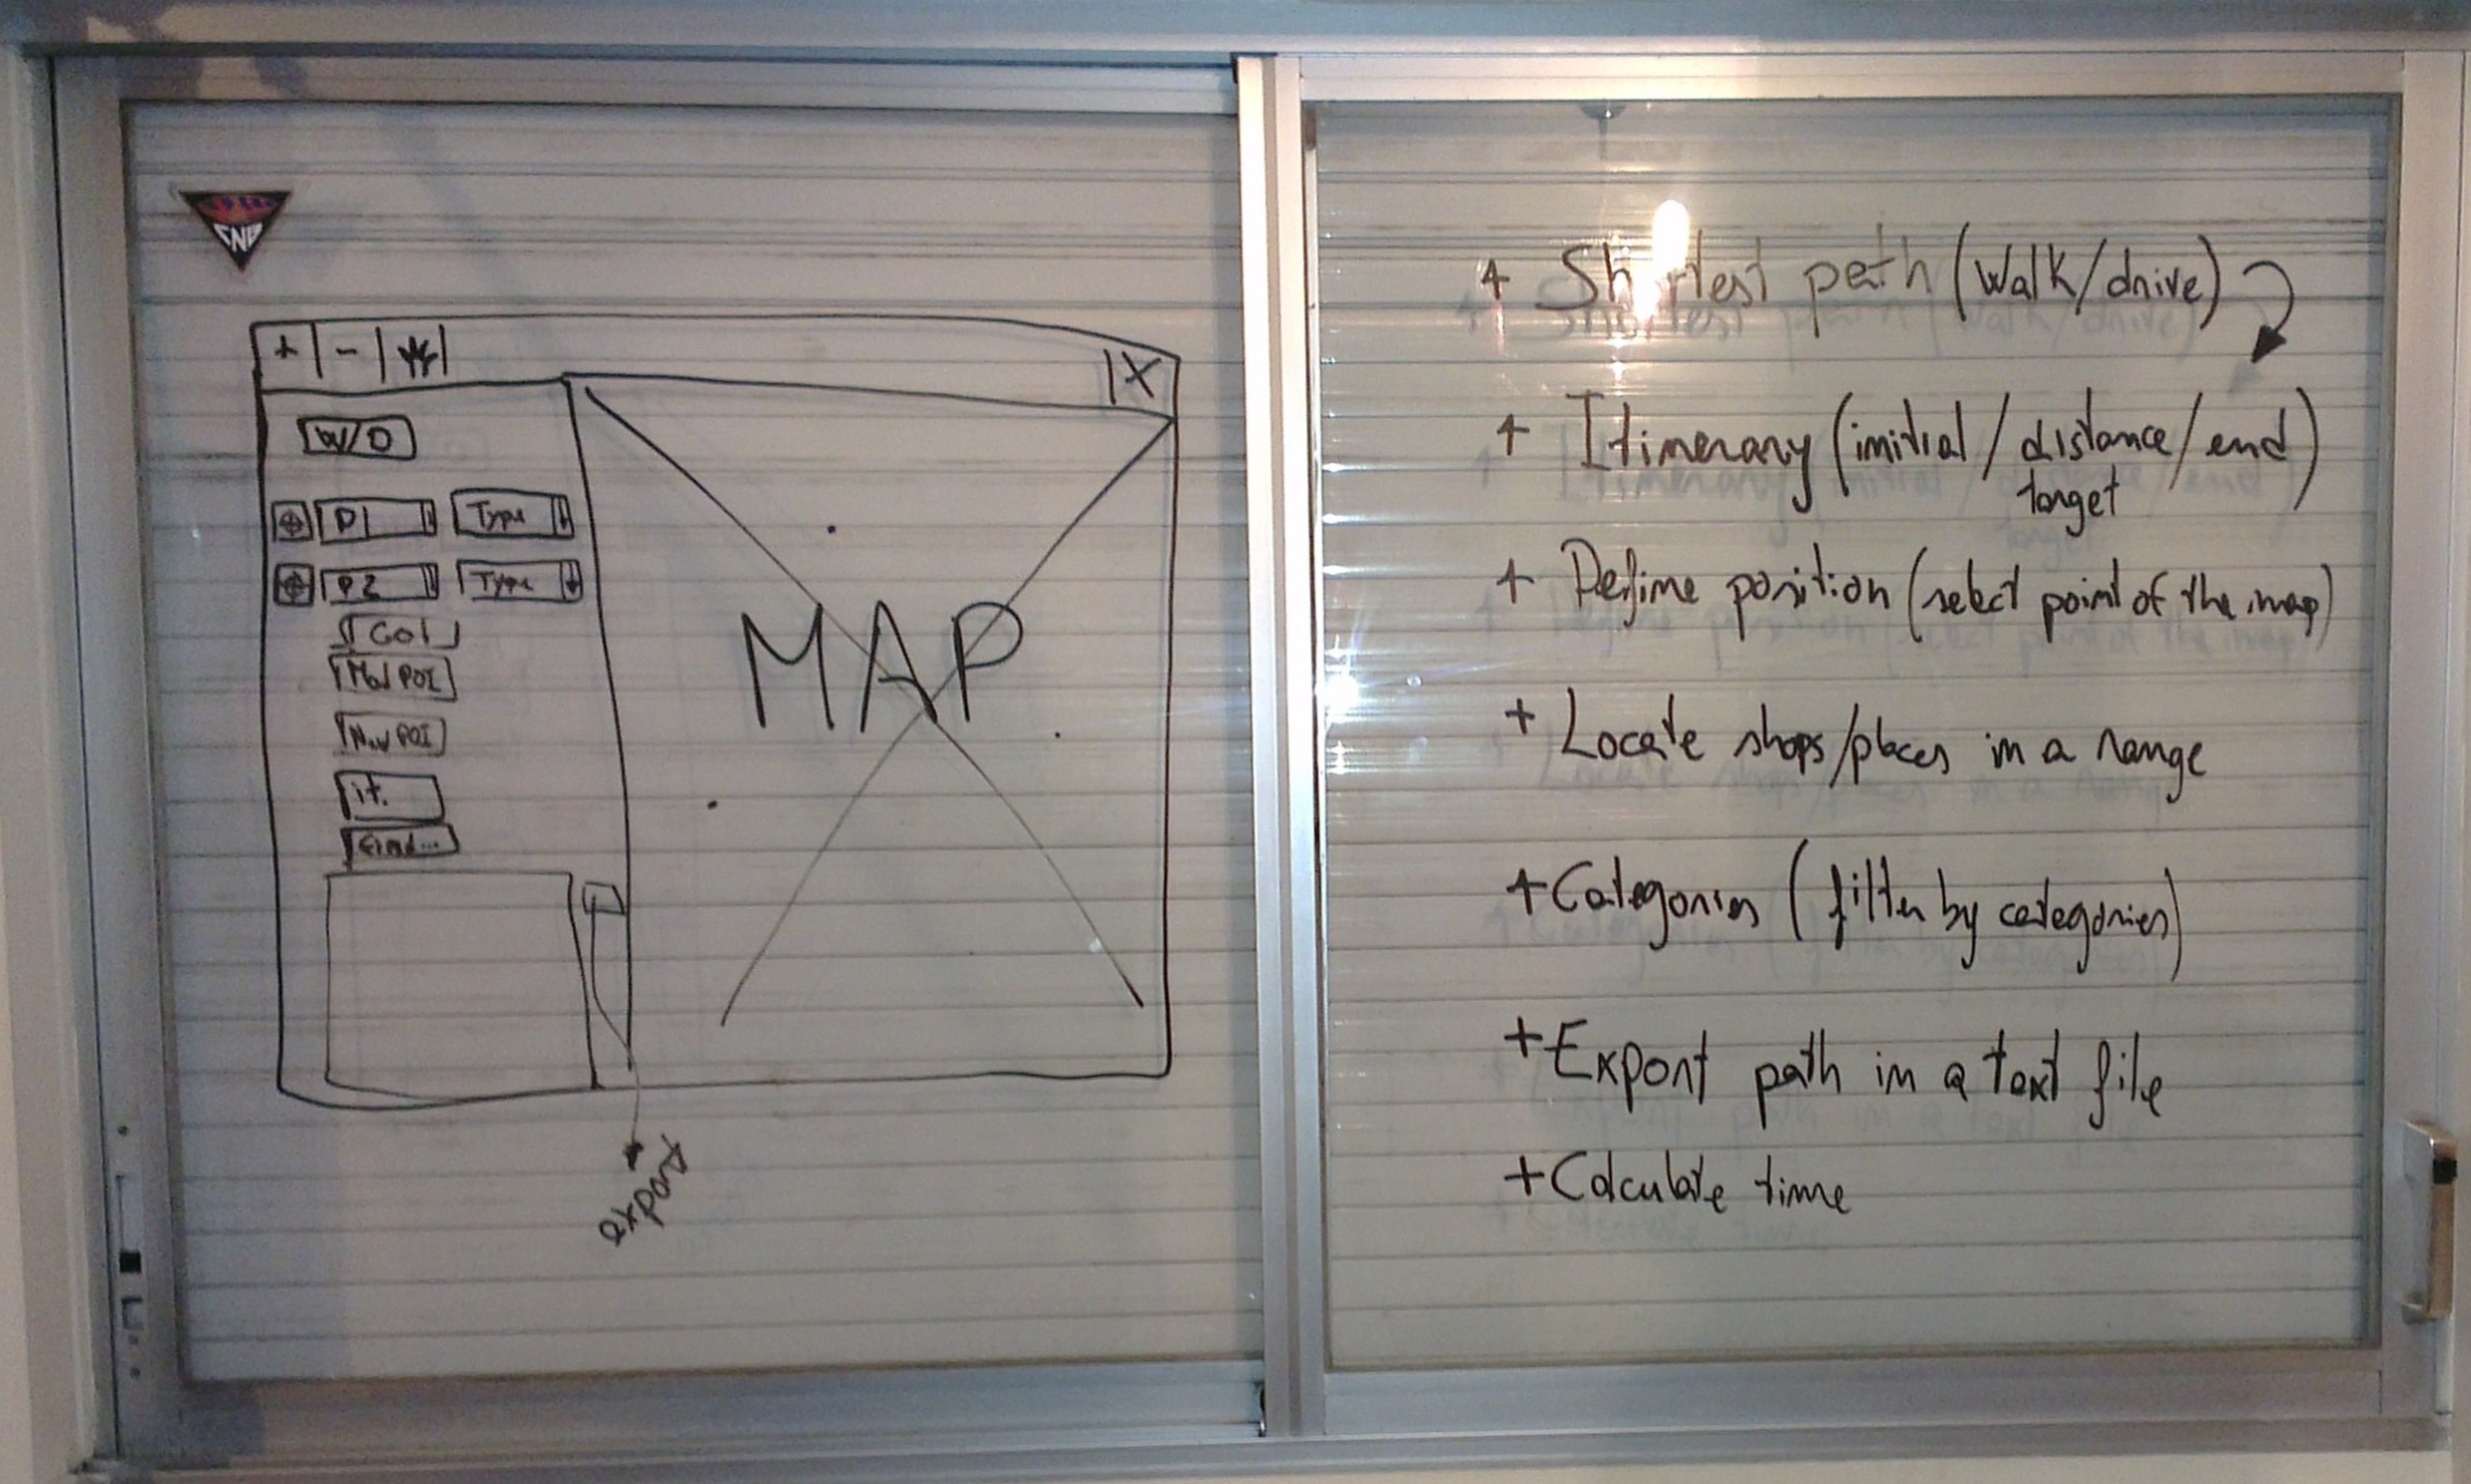 CNB
+ | - |
X
W/D
P1 Type
P2 Type
Go!
Mod POI
New POI
it.
Find...
MAP
export
+ Shortest path (walk/drive)
+ Itinerary (initial / distance / end)
target
+ Define position (select point of the map)
+ Locate shops/places in a range
+ Categories (filter by categories)
+ Export path in a text file
+ Calculate time